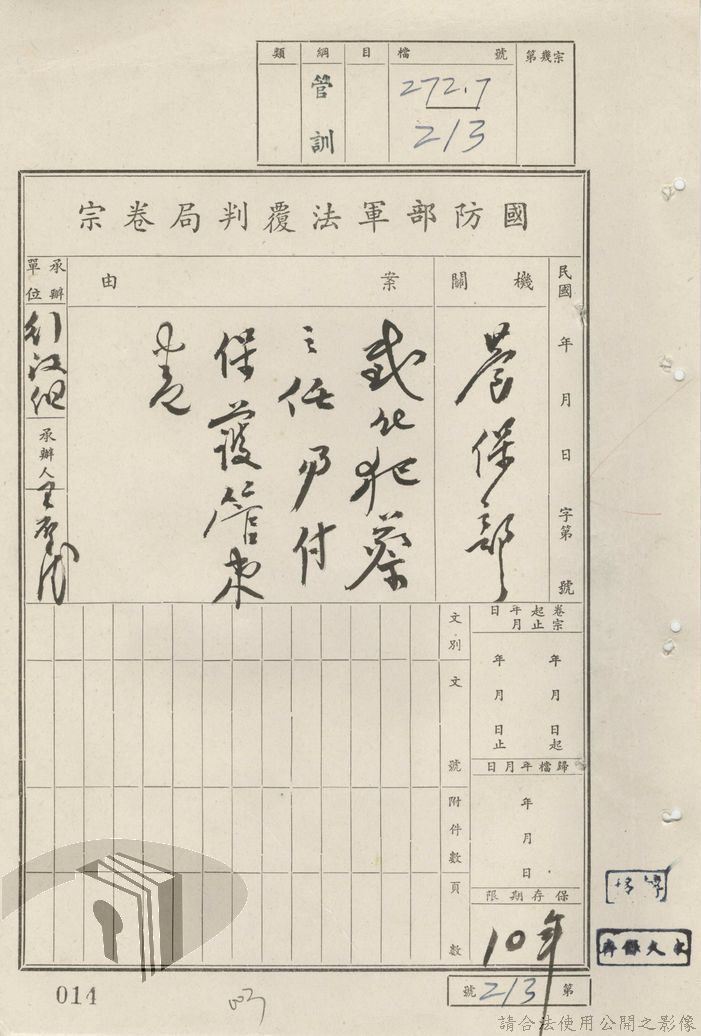 類 綱 目 檔號 第幾宗
管訓 272.7
213
國防部軍法覆判局卷宗
民國 年 月 日 字第 號
機關
案由
承辦單位
農保部
感化犯蔡
之任易付
保護管束
卷
行政組
承辦人
王
卷宗起止年月日
年 月 日起
年 月 日止
歸檔年月日
年 月 日
保存期限
10年
文別
文號
附件數
頁數
第213號
014
請合法使用公開之影像